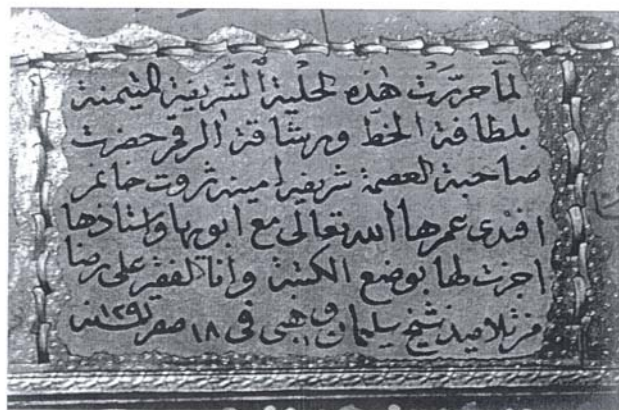 لما حررت هذه الحلية الشريفة المتيمنة
بلطافة الخط ورشاقة الرقم حضرت
صاحبة العصمة شريفه امينه ثروت خانم
افندى عمرها الله تعالى مع ابويها واستاذها
اجزت لها بوضع الكتبة وانا الفقير على رضا
من تلاميذ شيخ سليمان وهبى فى ١٨ صفر سنه